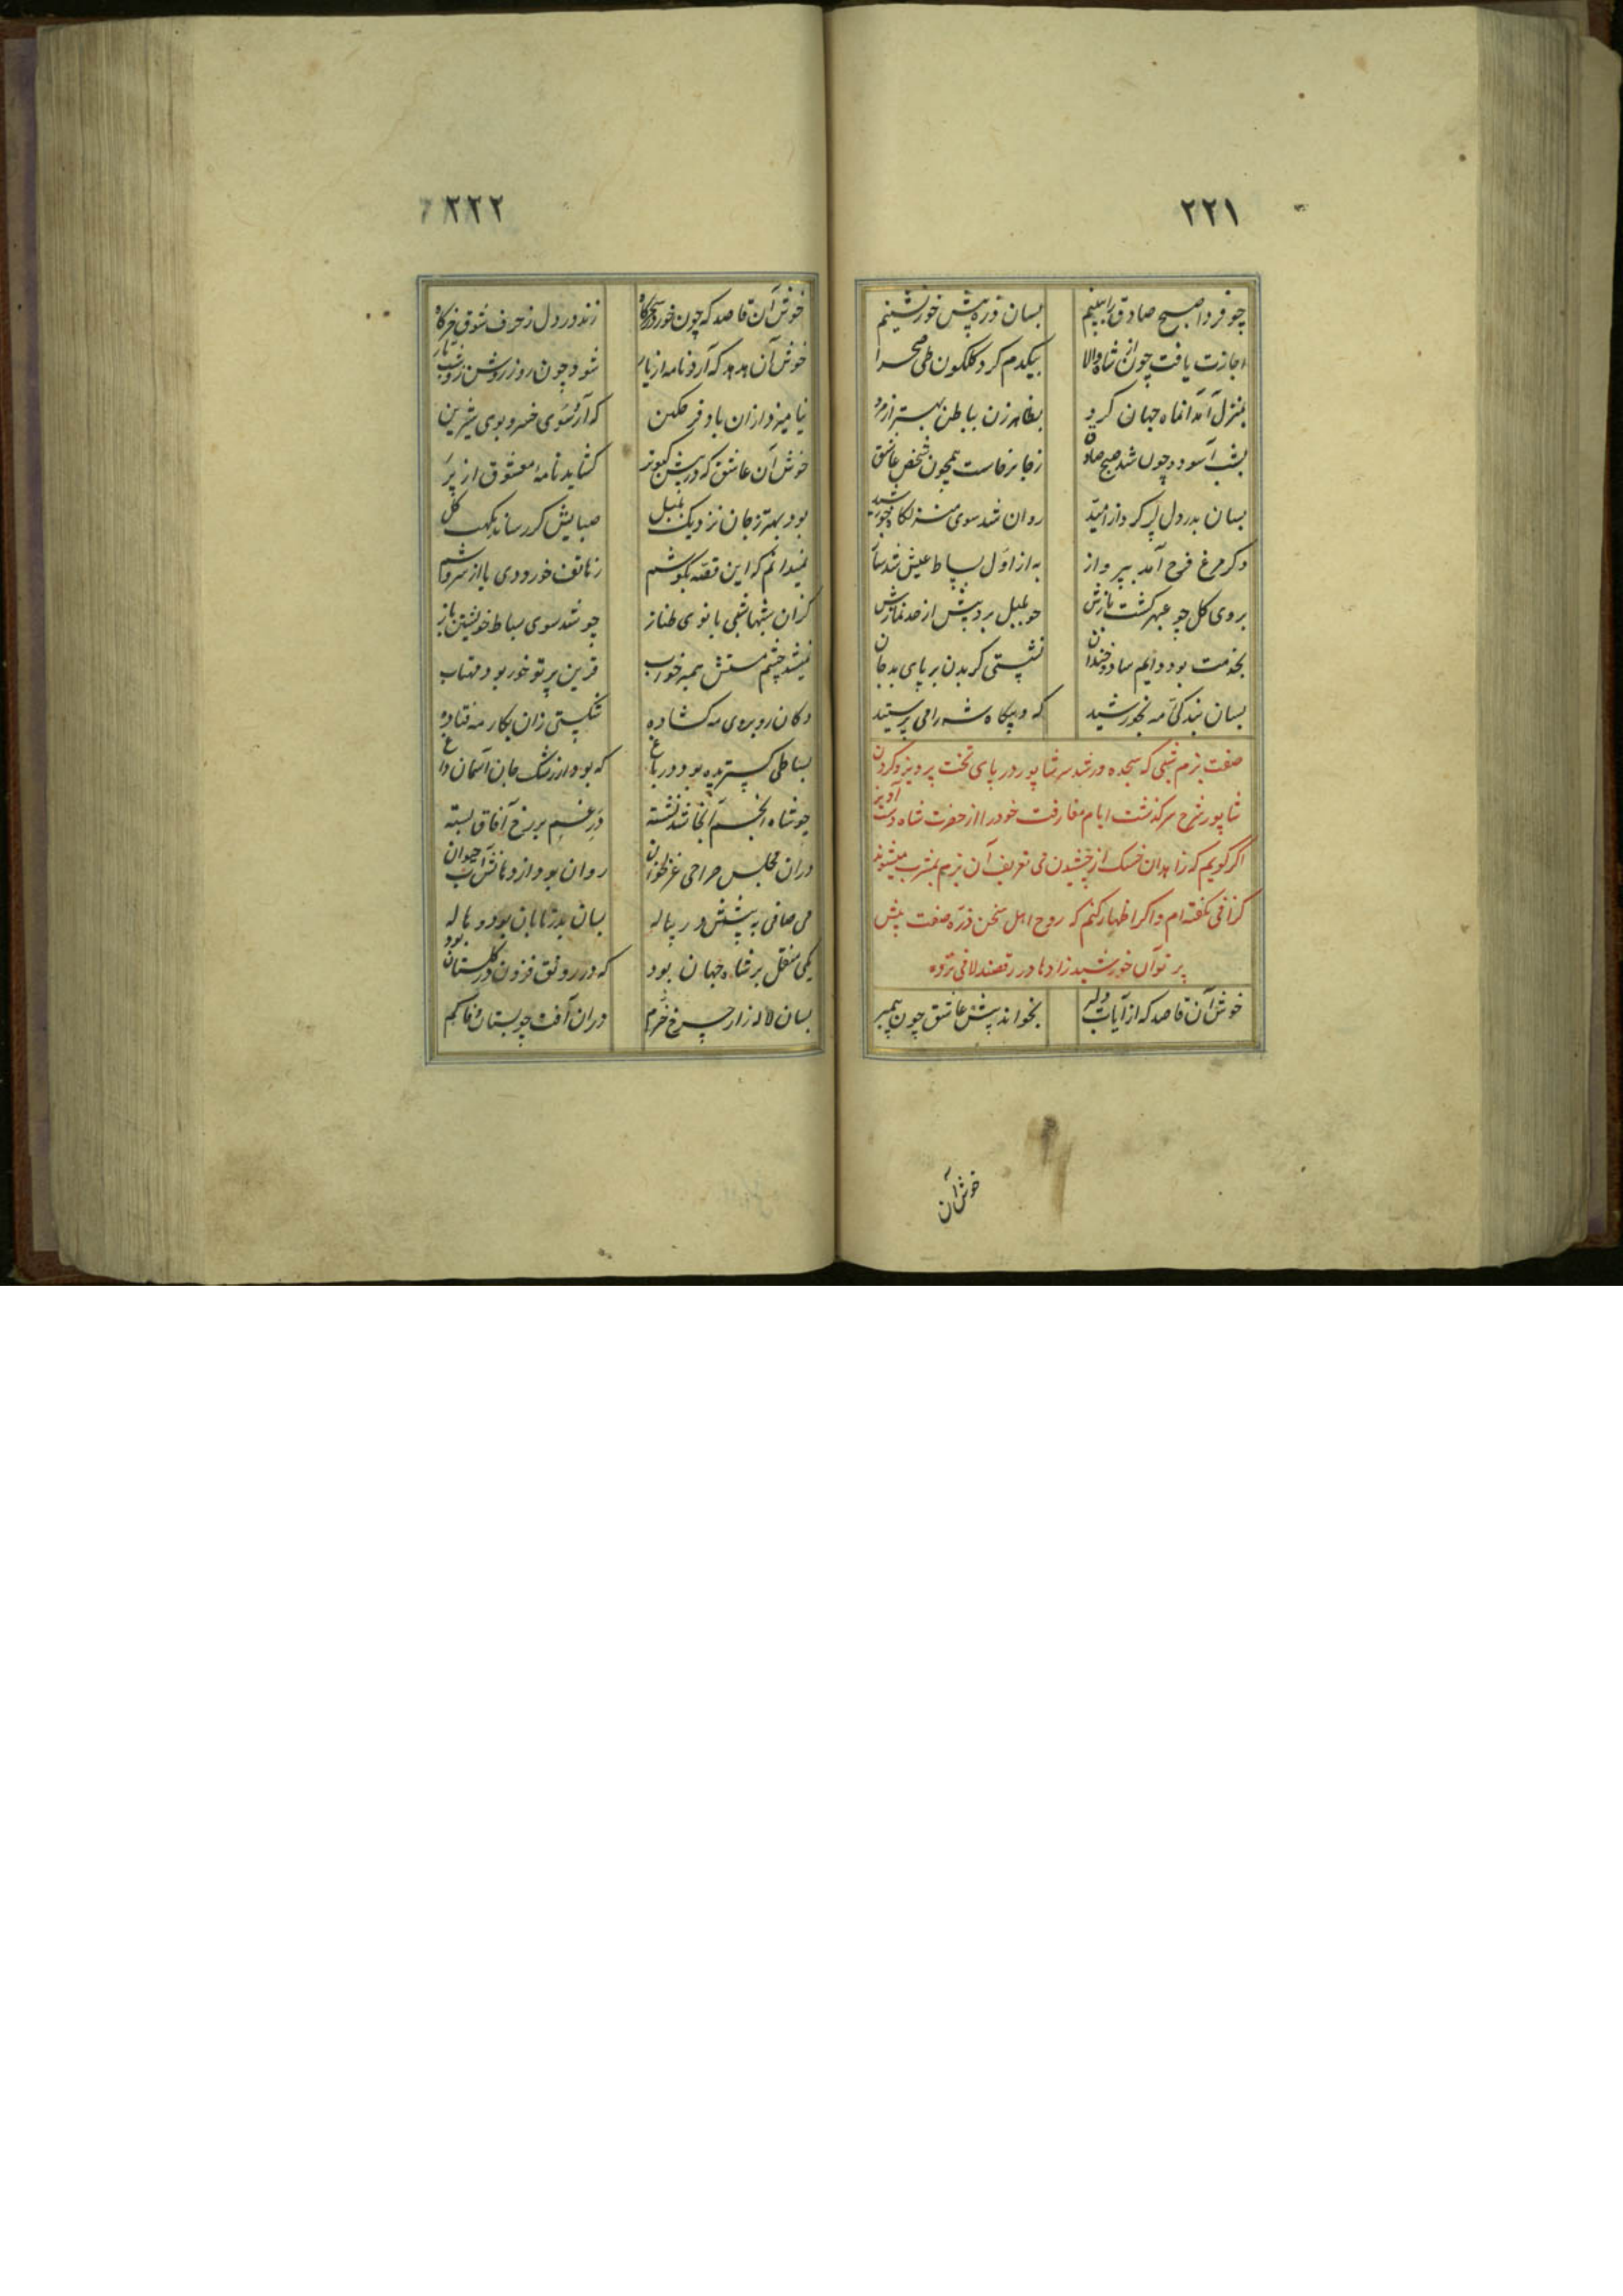 ۲۲۱
چو فردا صبح صادق را ببینیم بسان ذره پیش خور نشینیم
اجازت یافت چون از شاه والا بیکدم کرد گلگون طی صحرا
بمنزل آمد آنماه جهان کرد بظاهر زن بباطن بهتر از مرد
بشب آسود و چون شد صبح صادق ز جا برخاست همچون شخص عاشق
بسان بدر دل پر کرد از امید روان شد سوی منزلگاه خورشید
دکر مرغ فرح آمد بپرواز به از اول بساط عیش شد ساز
بروی کل چو عبهر کشت بازش چو بلبل برد پیش از حد نمازش
بخدمت بود دایم شاد و خندان نشستی کر بدن بر پای بد جان
بسان بندکی مه بخورشید که و بیکاه شه را می پرستید
صفت بزم شبی که سجده ور شد سر شاپور در پای تخت پرویز و کردن
شاپور شرح سرکذشت ایام مفارقت خود را از حضرت شاه دست آویز
اکر کویم که زاهدان خشک از چشیدن می تعریف آن بزم بمشرب میشوند
کزافی نکفته ام و اکر اظهار کنم که روح اهل سخن ذره صفت پیش
پرتو آن خورشید زادها در رقصند لافی نزده
خوش آن قاصد که از آیات دلبر بخواند پیش عاشق چون پیمبر
خوش آن
۲۲۲
خوش آن قاصد که چون خور در سحرکاه زند در دل ز حرف شوق خرکاه
خوش آن هدهد که آرد نامه از یار شود چون روز روشن زو شب تار
نیامیزد ازان باد و فر تمکین که آرد سوی خسرو بوی شیرین
خوش آن عاشق که در پیش کبوتر کشاید نامه معشوق از پر
بود بهتر ز جان نزدیک بلبل صبایش کر رساند نکهت کل
نمیدانم که این قصه بکوشم ز هاتف خورد و یا از سروشم
کزان شبها شبی بانوی طناز چو شد سوی بساط خویشتن باز
نمیشد چشم مستش همبر خواب قرین پرتو خور بود مهتاب
دکان روبروی مه کشاده شکستی زان بکار مه فتاده
بساطی کستریده بود در باغ که بود از رشک جان آسمان داغ
چو شاه انجم آنجا شد نشسته در غم بر رخ آفاق بسته
دران مجلس صراحی غزلخوان روان بود از دهانش آب حیوان
می صافی به پیشش در پیاله بسان بدر تابان بود و هاله
یکی منقل بر شاه جهان بود که در رونق فزون از کلستان بود
بسان لاله زار چرخ خرم دران آفت چو بستان